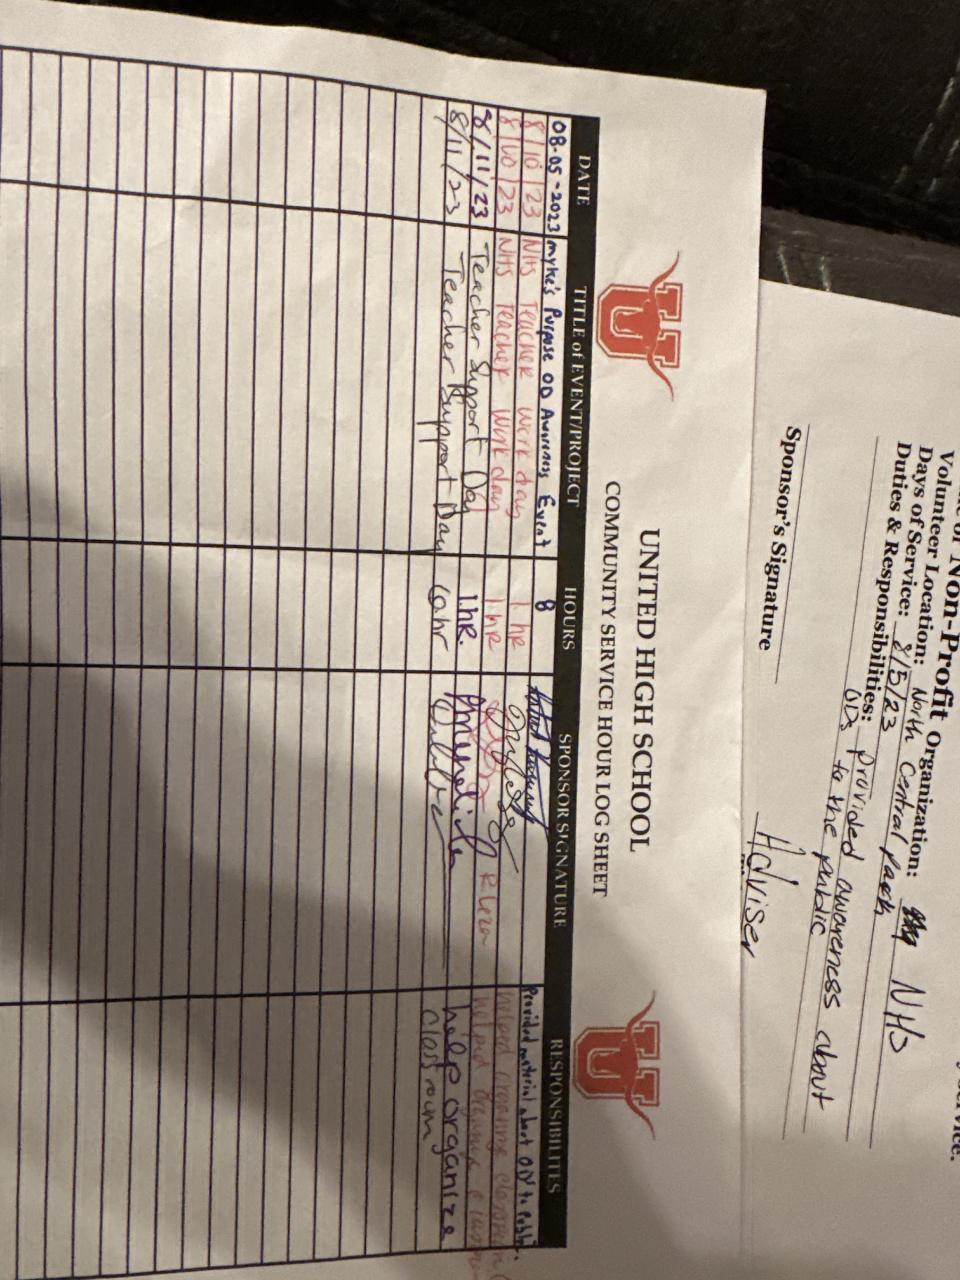 Non-Profit Organization: NHS
Volunteer Location: North Central Park
Days of Service: 8/5/23
Duties & Responsibilities: provided awareness about
ODs to the public
Sponsor's Signature
Adviser
UNITED HIGH SCHOOL
COMMUNITY SERVICE HOUR LOG SHEET
DATE TITLE of EVENT/PROJECT HOURS SPONSOR SIGNATURE RESPONSIBILITES
08-05-2023 Myke's Purpose OD Awareness Event 8 Provided material about OD to
8/10/23 NHS Teacher Work day 1 hr helped organize classroom
8/10/23 NHS Teacher Work day 1 hr R Leza helped organize
8/11/23 Teacher Support Day 1 hr. help organize
8/11/23 Teacher Support Day hr classroom